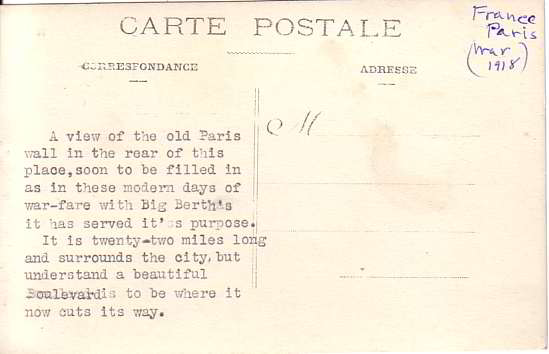 CARTE POSTALE
France
Paris
(War
1918)
CORRESPONDANCE
ADRESSE
M
A view of the old Paris
wall in the rear of this
place,soon to be filled in
as in these modern days of
war-fare with Big Bertha's
it has served it's purpose.
It is twenty-two miles long
and surrounds the city, but
understand a beautiful
Boulevard is to be where it
now cuts its way.